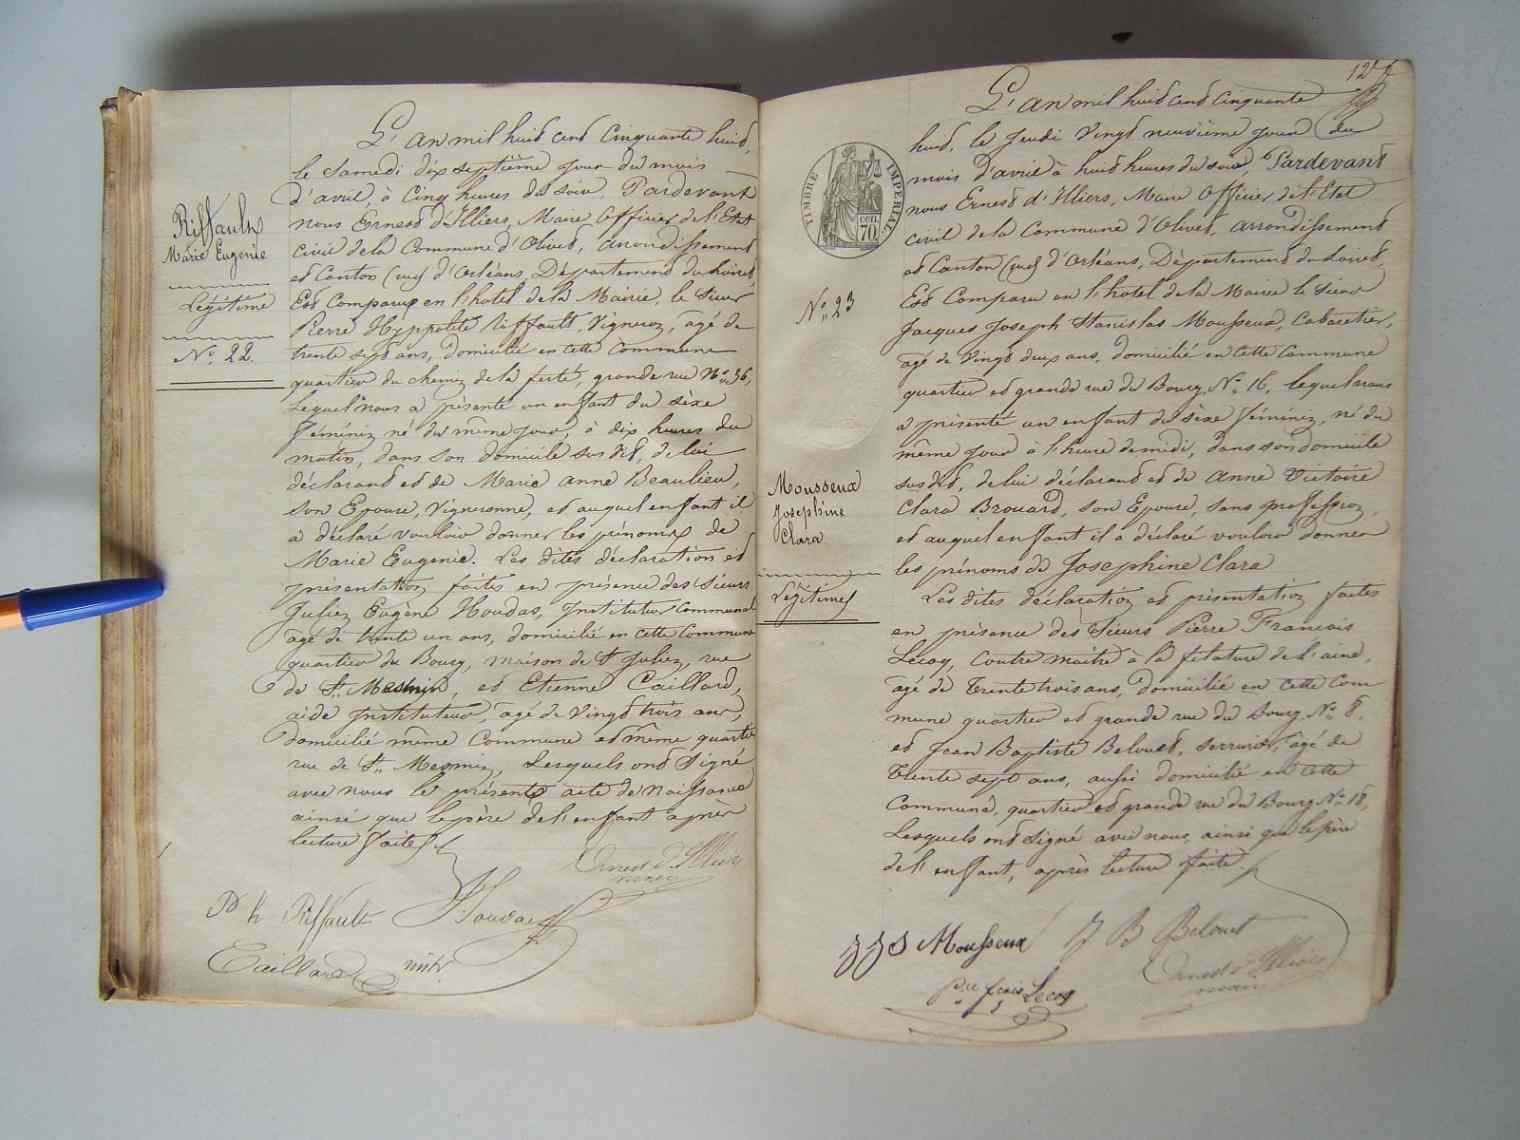 L'an mil huit cent Cinquante huit,
le Samedi dix septième jour du mois
d'avril, à Cinq heures du soir, Pardevant
nous Ernest d'Illiers, Maire Officier de l'Etat
Civil de la Commune d'Olivet, arrondissement
et Canton (sud) d'Orléans, Département du Loiret,
Est Comparu en l'hôtel de la Mairie, le Sieur
Pierre Hyppolite Riffault, Vigneron, âgé de
trente sept ans, domicilié en cette Commune
quartier du chemin de la ferté, grande rue N° 36,
Lequel nous a présenté un enfant du sèxe
féminin né du même jour, à dix heures du
matin, dans son domicile sus dit, de lui
déclarant et de Marie Anne Beaulieu,
son Epouse, Vigneronne, et auquel enfant il
a déclaré vouloir donner les prénoms de
Marie Eugenie. Les dites déclaration et
présentation faites en présence des Sieurs
Julien Eugène Houdas, Instituteur communal
âgé de trente un ans, domicilié en cette Commune
quartier du Bourg, maison de St Julien, rue
de St. Mesmin, et Etienne Caillard,
aide Instituteur, âgé de Vingt trois ans,
domicilié même Commune et même quartier
rue de St. Mesmin, Lesquels ont Signé
avec nous le présente acte de Naissance
ainsi que le père de l'enfant après
lecture faite.
Riffault
Marie Eugenie
Légitime
N° 22.
Ernest d'Illiers
maire
P h Riffault
Houdas
Caillard
12
L'an mil huit cent Cinquante
huit, le Jeudi Vingt neuvième jour du
mois d'avril à huit heures du soir, Pardevant
nous Ernest d'Illiers, Maire Officier de l'Etat
civil de la Commune d'Olivet, arrondissement
et Canton (sud) d'Orléans, Département du Loiret,
Est Comparu en l'hôtel de la Mairie le Sieur
Jacques Joseph Stanislas Mousseux, Cabaretier,
âgé de Vingt deux ans, domicilié en cette Commune
quartier et grande rue du Bourg, N° 16, lequel nous
a présenté un enfant du sèxe féminin, né du
même jour à l'heure de midi, dans son domicile
sus dit, de lui déclarant et de Anne Victoire
Clara Brouard, son Epouse, sans profession,
et auquel enfant il a déclaré vouloir donner
les prénoms de Josephine Clara
Les dites déclaration et présentation faites
en présence des Sieurs Pierre Francois
Lecoq, Contre maitre à la filature de laine,
âgé de Trente trois ans, domicilié en cette Com
mune quartier et grande rue du Bourg, N° 8,
et Jean Baptiste Belouet, serrurier, âgé de
Trente sept ans, aussi domicilié en cette
Commune, quartier et grande rue du Bourg N° 18,
Lesquels ont Signé avec nous, ainsi que le père
de l'enfant, après lecture faite.
TIMBRE IMPERIAL
CEN.
70
N° 23
Mousseux
Josephine
Clara
Légitime
J J S Mousseux
J B Belouet
Ernest d'Illiers
maire
Pre fcois Lecoq